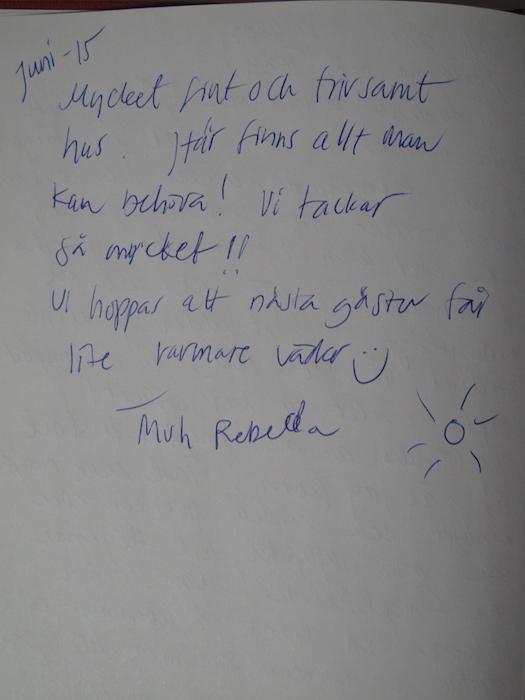 juni -15
Mycket fint och trivsamt
hus. Här finns allt man
kan behöva! Vi tackar
så mycket!!
Vi hoppas att nästa gäster får
lite varmare väder
Rebecka